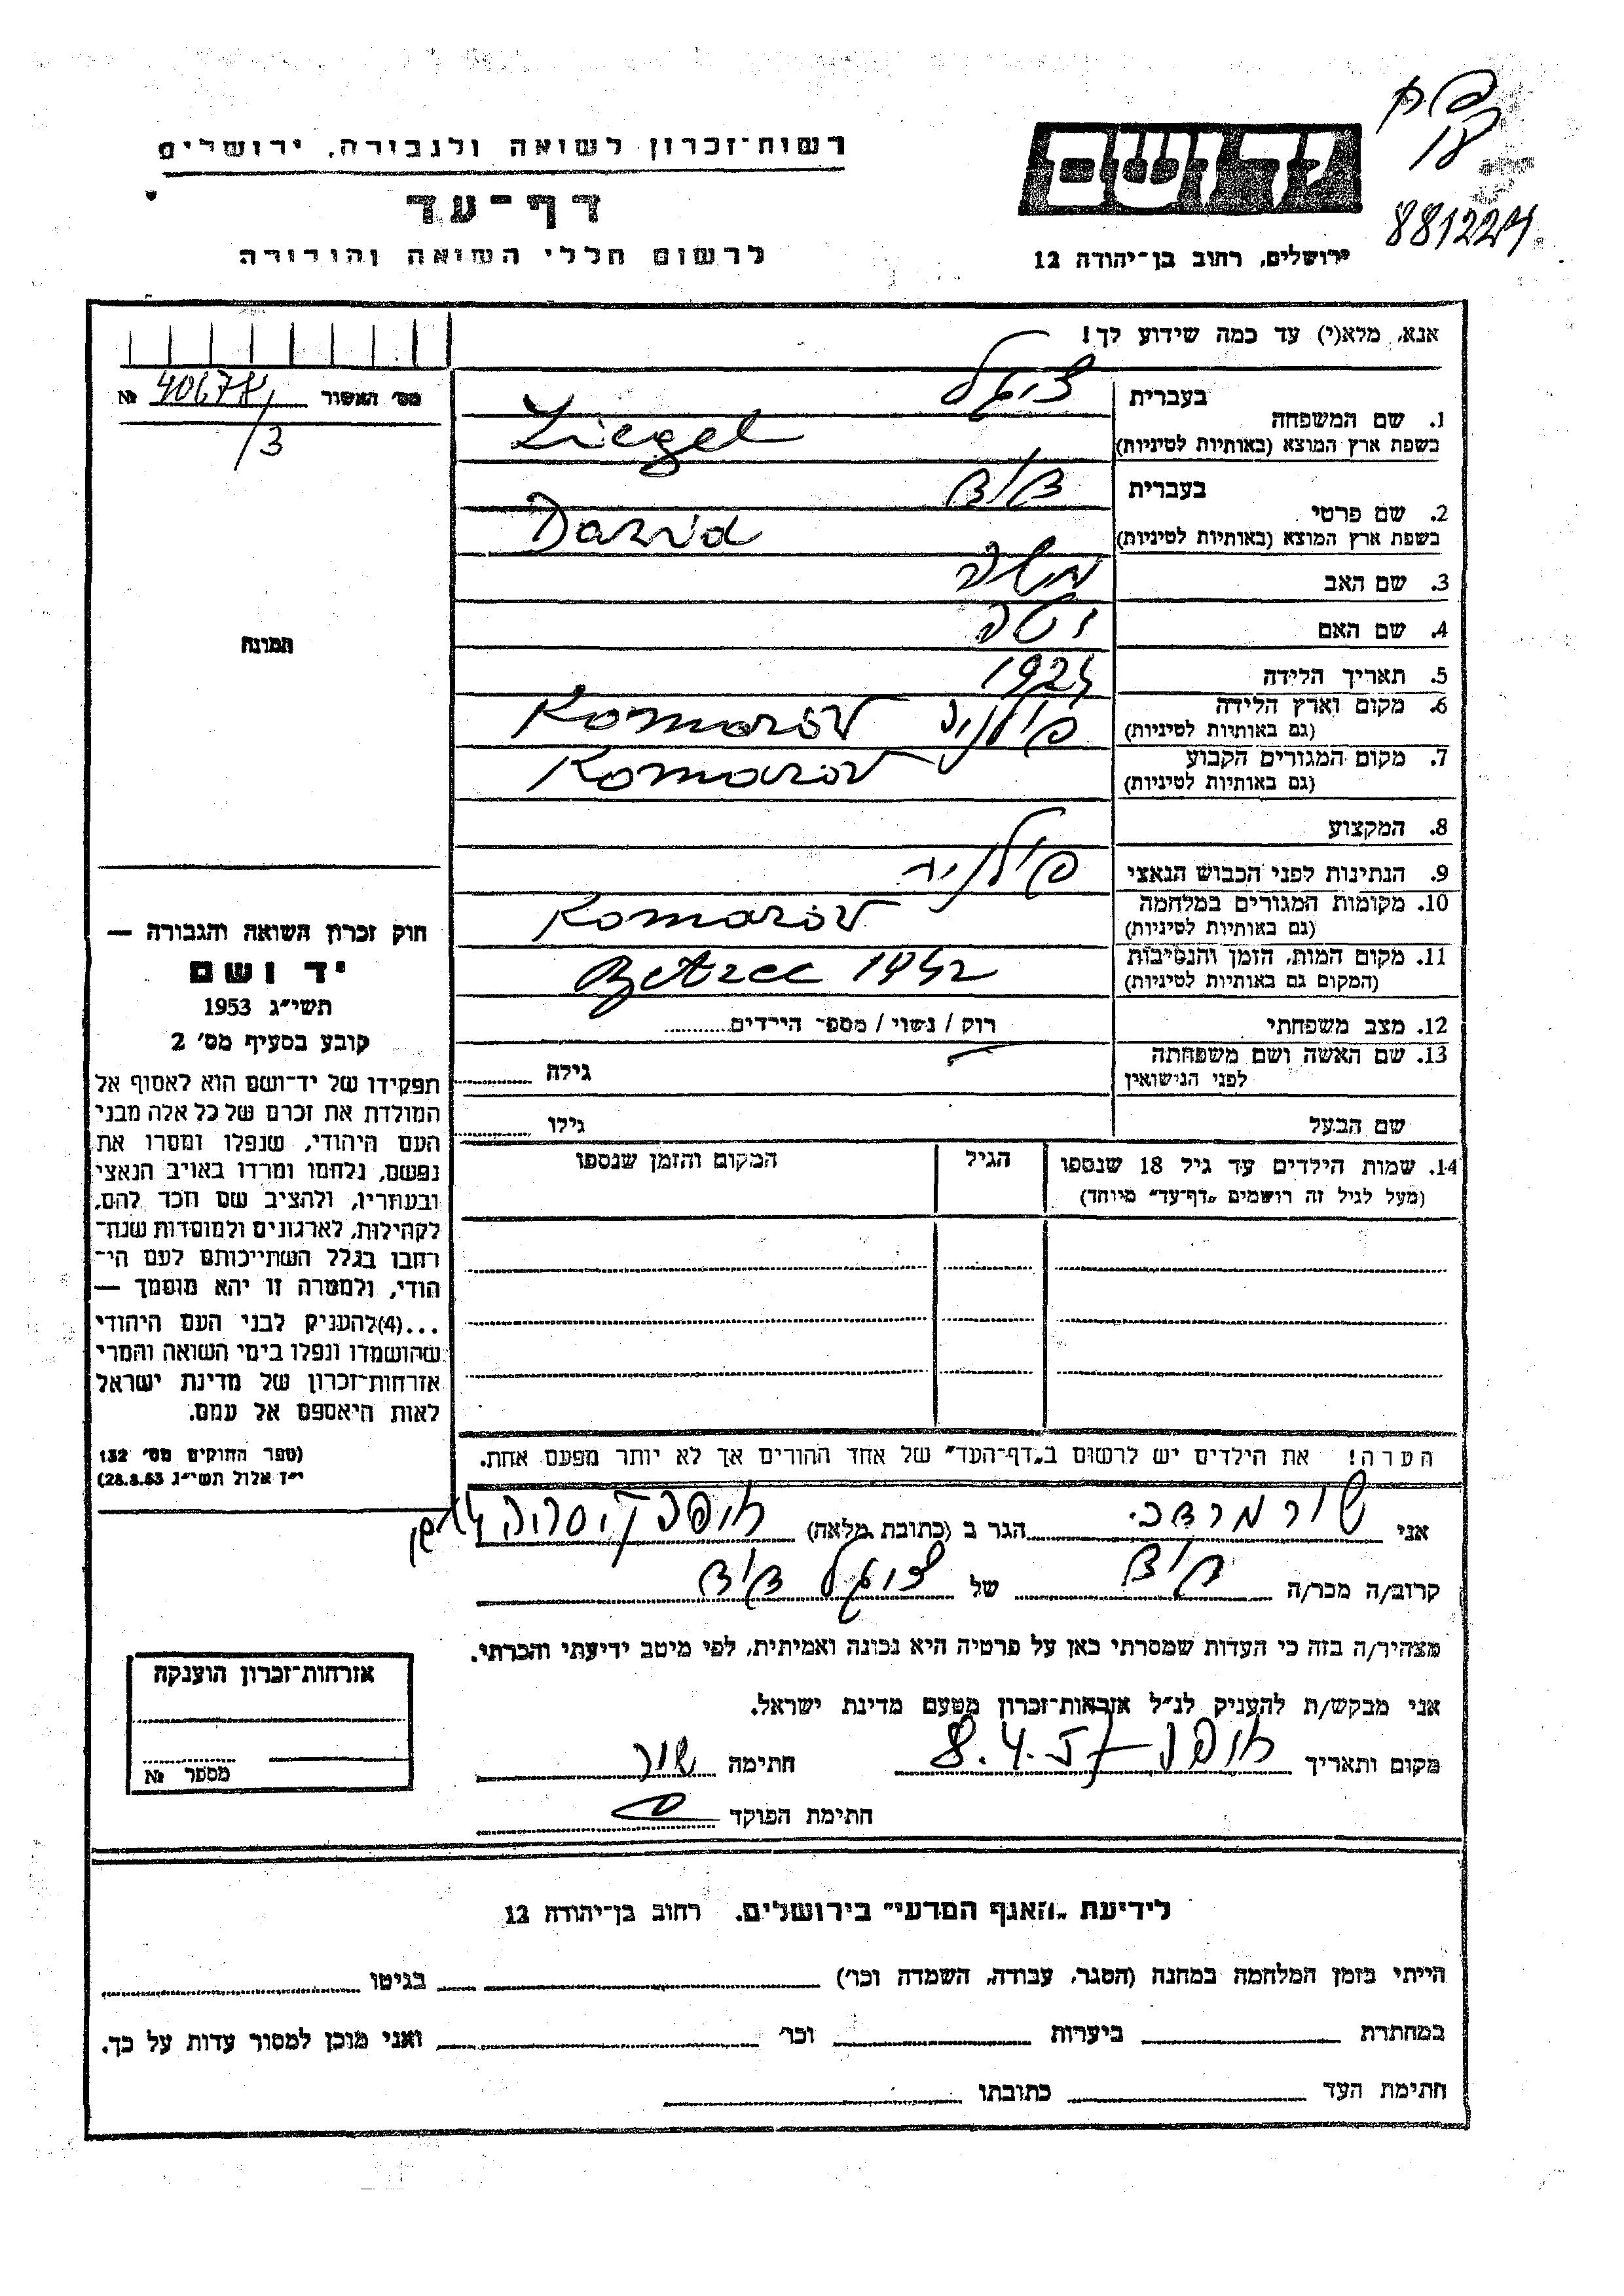 רשות־זכרון לשואה ולגבורה, ירושלים
דף־עד
לרשום חללי השואה והגבורה
יד ושם
ירושלים, רחוב בן־יהודה 12
אנא, מלא(י) עד כמה שידוע לך!
מס' האשור №
/3
1. שם המשפחה
בעברית
ציגל
בשפת ארץ המוצא (באותיות לטיניות)
Ziegel
2. שם פרטי
בעברית
דוד
בשפת ארץ המוצא (באותיות לטיניות)
Dawid
3. שם האב משה
4. שם האם
5. תאריך הלידה
6. מקום וארץ הלידה
(גם באותיות לטיניות)
פולניה Komarów
7. מקום המגורים הקבוע
(גם באותיות לטיניות)
Komarów
8. המקצוע
9. הנתינות לפני הכבוש הנאצי פולנית
10. מקומות המגורים במלחמה
(גם באותיות לטיניות)
Komarów
11. מקום המות, הזמן והנסיבות
(המקום גם באותיות לטיניות)
Bełzec 1942
12. מצב משפחתי רוק / נשוי / מספר הילדים
13. שם האשה ושם משפחתה
לפני הנישואין
גילה
שם הבעל גילו
14. שמות הילדים עד גיל 18 שנספו
(מעל לגיל זה רושמים „דף־עד" מיוחד)
הגיל
המקום והזמן שנספו
הערה! את הילדים יש לרשום ב„דף־העד" של אחד ההורים אך לא יותר מפעם אחת.
תמונה
חוק זכרון השואה והגבורה —
יד ושם
תשי"ג 1953
קובע בסעיף מס' 2
תפקידו של יד־ושם הוא לאסוף אל
המולדת את זכרם של כל אלה מבני
העם היהודי, שנפלו ומסרו את
נפשם, נלחמו ומרדו באויב הנאצי
ובעוזריו, ולהציב שם וזכר להם,
לקהילות, לארגונים ולמוסדות שנח־
רבו בגלל השתייכותם לעם הי־
הודי, ולמטרה זו יהא מוסמך —
...(4)להעניק לבני העם היהודי
שהושמדו ונפלו בימי השואה והמרי
אזרחות־זכרון של מדינת ישראל
לאות היאספם אל עמם.
(ספר החוקים מס' 132
י"ז אלול תשי"ג 28.8.53)
אני שור מרדכי הגר ב (כתובת מלאה)
קרוב/ה מכר/ה של ציגל דוד
מצהיר/ה בזה כי העדות שמסרתי כאן על פרטיה היא נכונה ואמיתית, לפי מיטב ידיעתי והכרתי.
אני מבקש/ת להעניק לנ"ל אזרחות־זכרון מטעם מדינת ישראל.
מקום ותאריך 8.4.57 חתימה שור
חתימת הפוקד
אזרחות־זכרון הוענקה
מספר №
לידיעת „האגף המדעי" בירושלים. רחוב בן־יהודה 12
הייתי בזמן המלחמה במחנה (הסגר, עבודה, השמדה וכו') בגיטו
במחתרת ביערות וכו' ואני מוכן למסור עדות על כך.
חתימת העד כתובתו